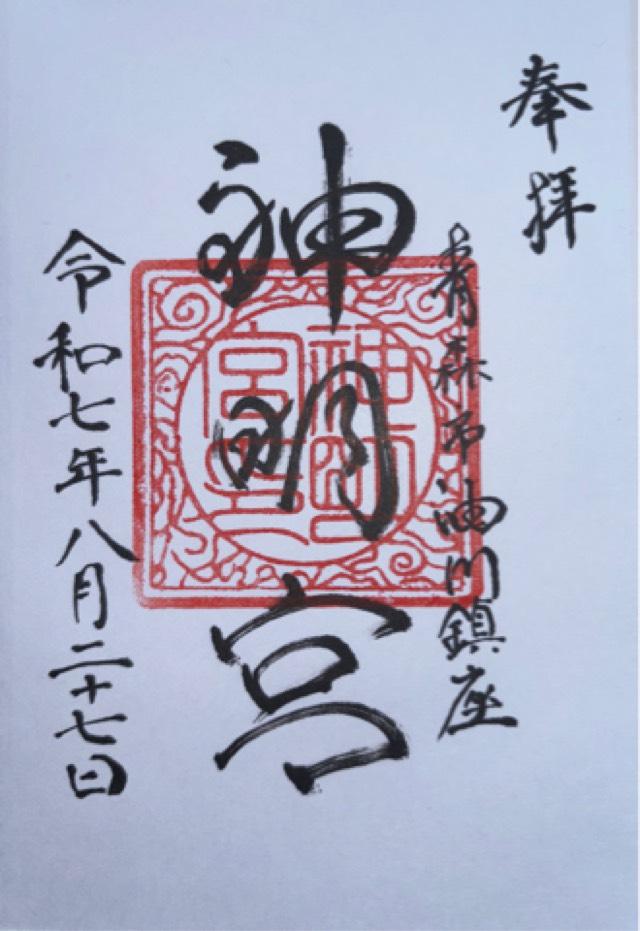 奉拝
青森市油川鎮座
神明宮
令和七年八月二十七日